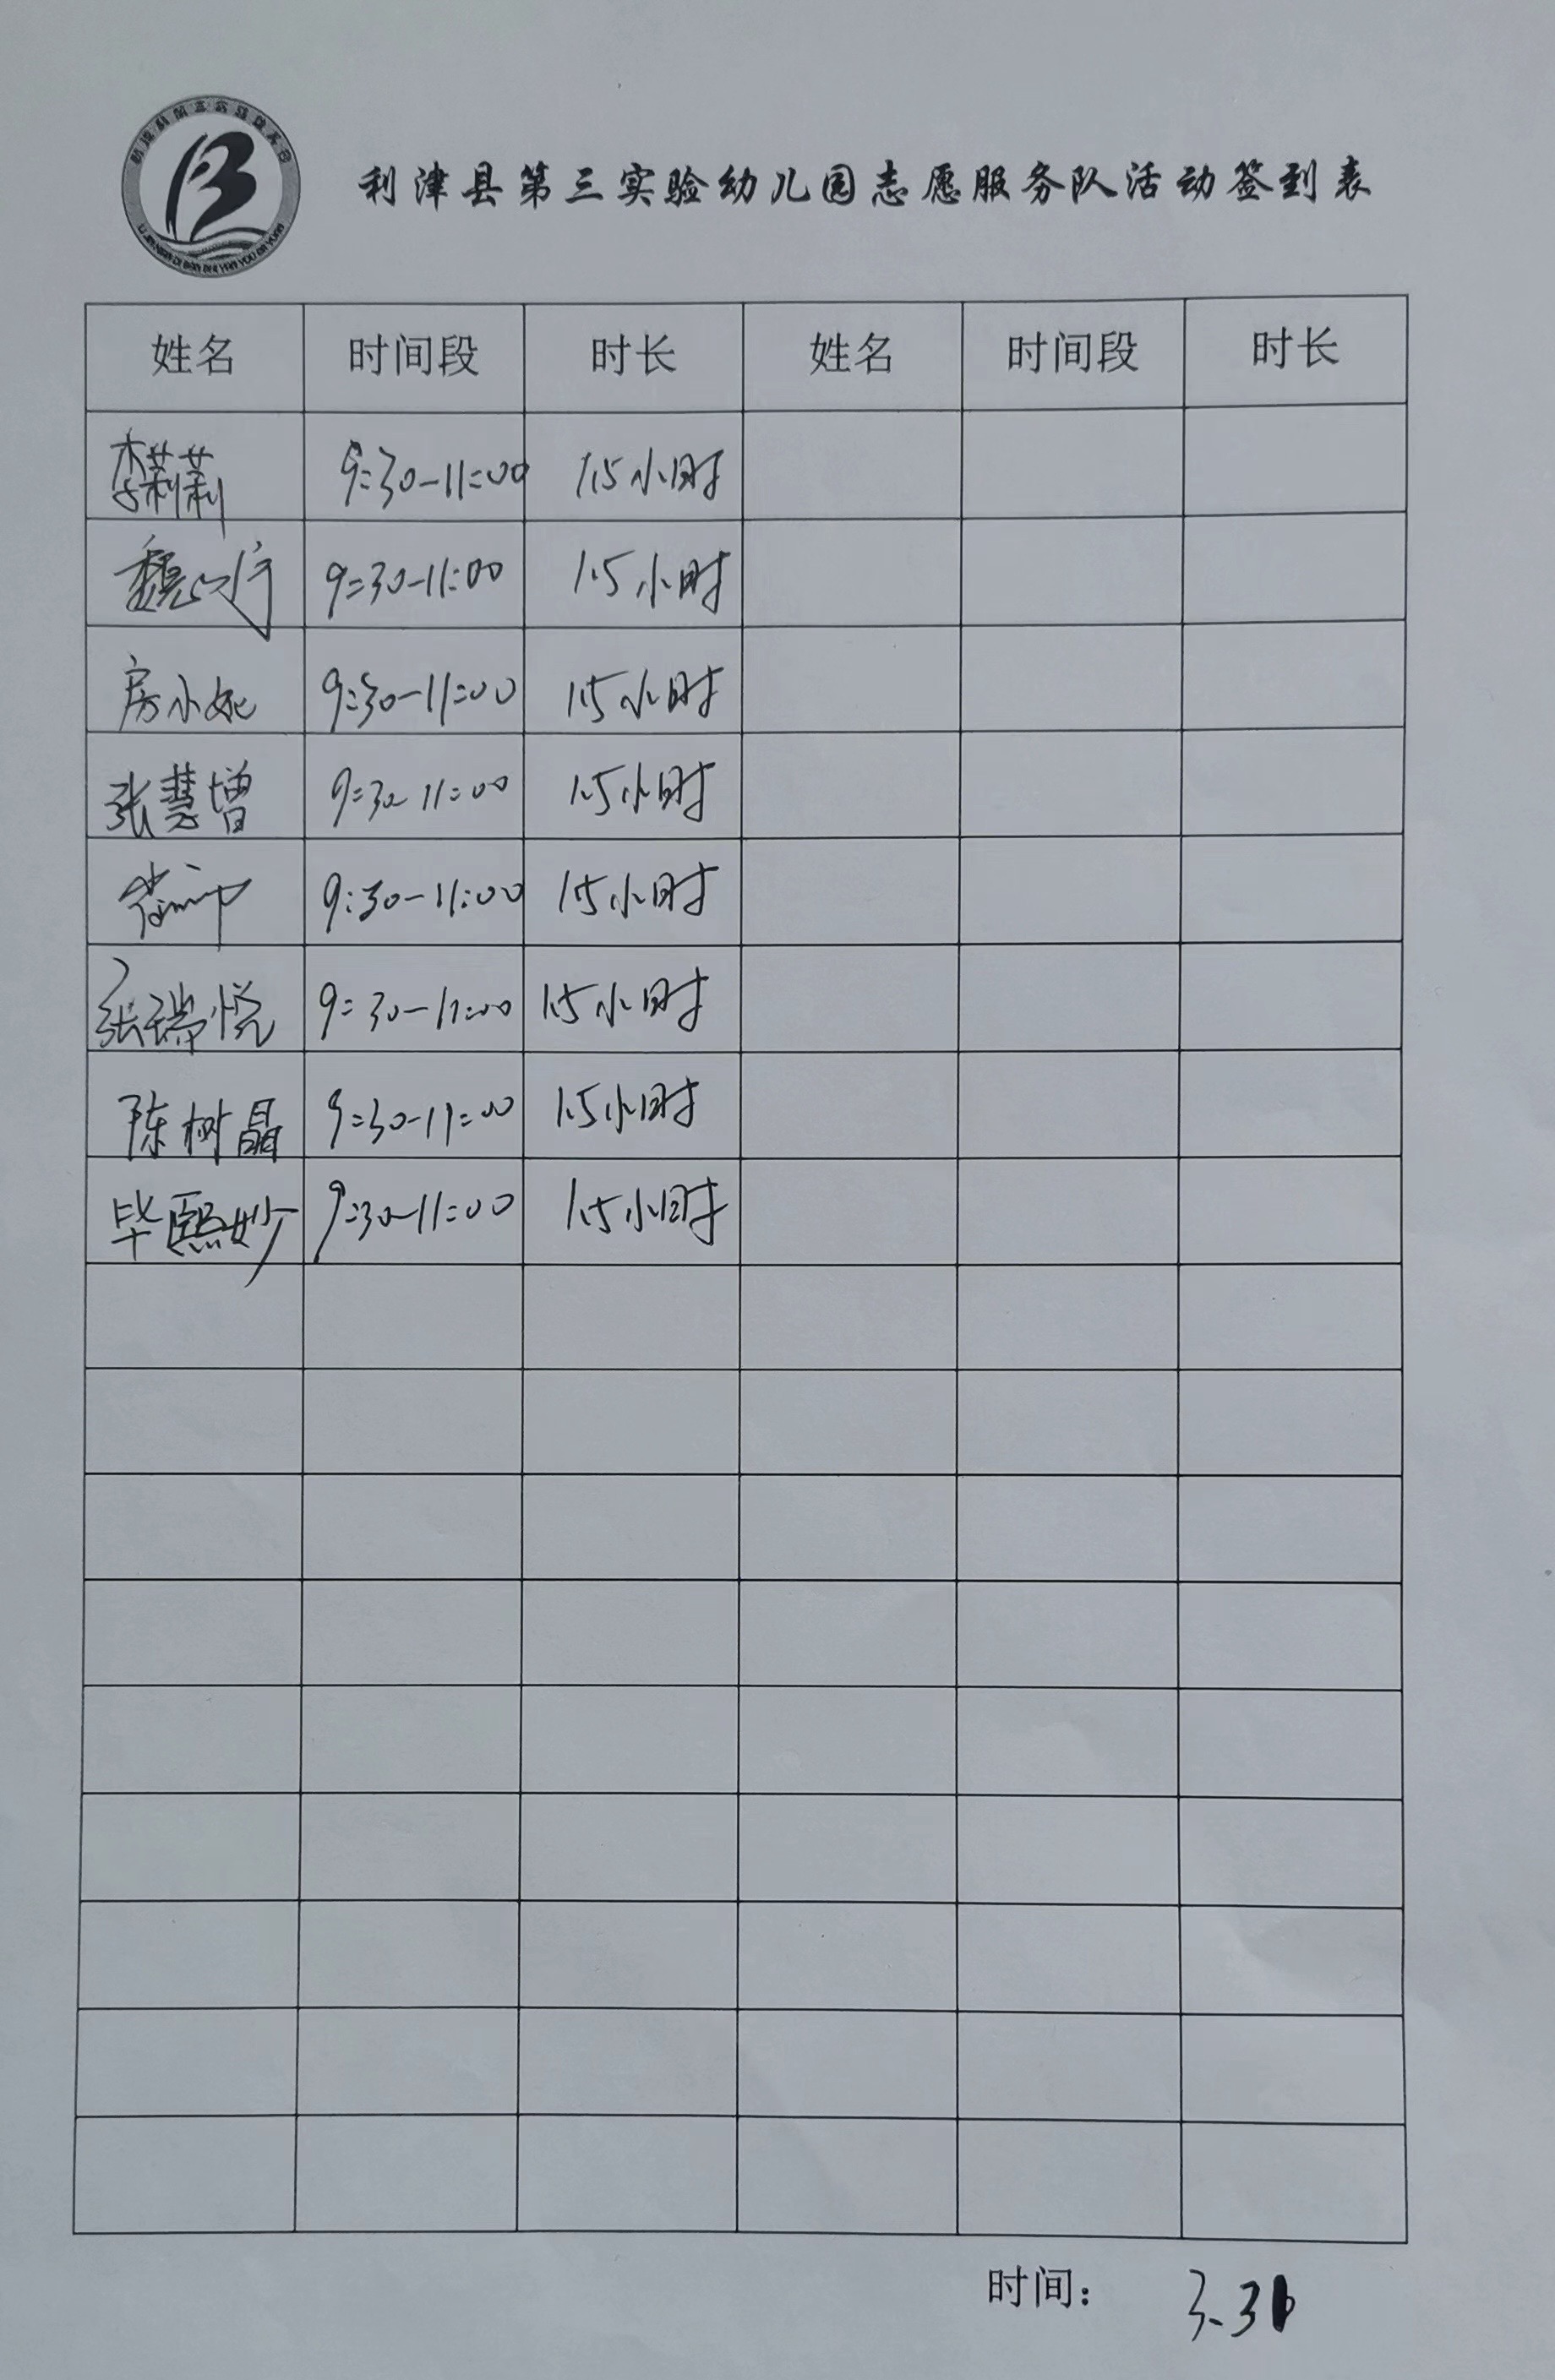 利津县第三实验幼儿园志愿服务队活动签到表
姓名 时间段 时长 姓名 时间段 时长
李莉莉 9:30-11:00 1.5小时
魏 9:30-11:00 1.5小时
房小妮 9:30-11:00 1.5小时
张慧增 9:30-11:00 1.5小时
9:30-11:00 1.5小时
张瑞悦 9:30-11:00 1.5小时
陈树晶 9:30-11:00 1.5小时
毕熙妙 9:30-11:00 1.5小时
时间: 3.31